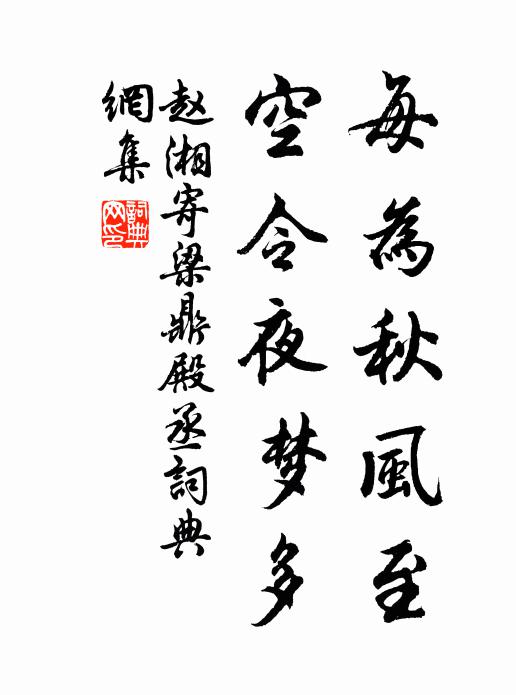 每為秋風至
空令夜梦多
赵湘寄梁鼎殿丞詞典
網集
詞典
网印